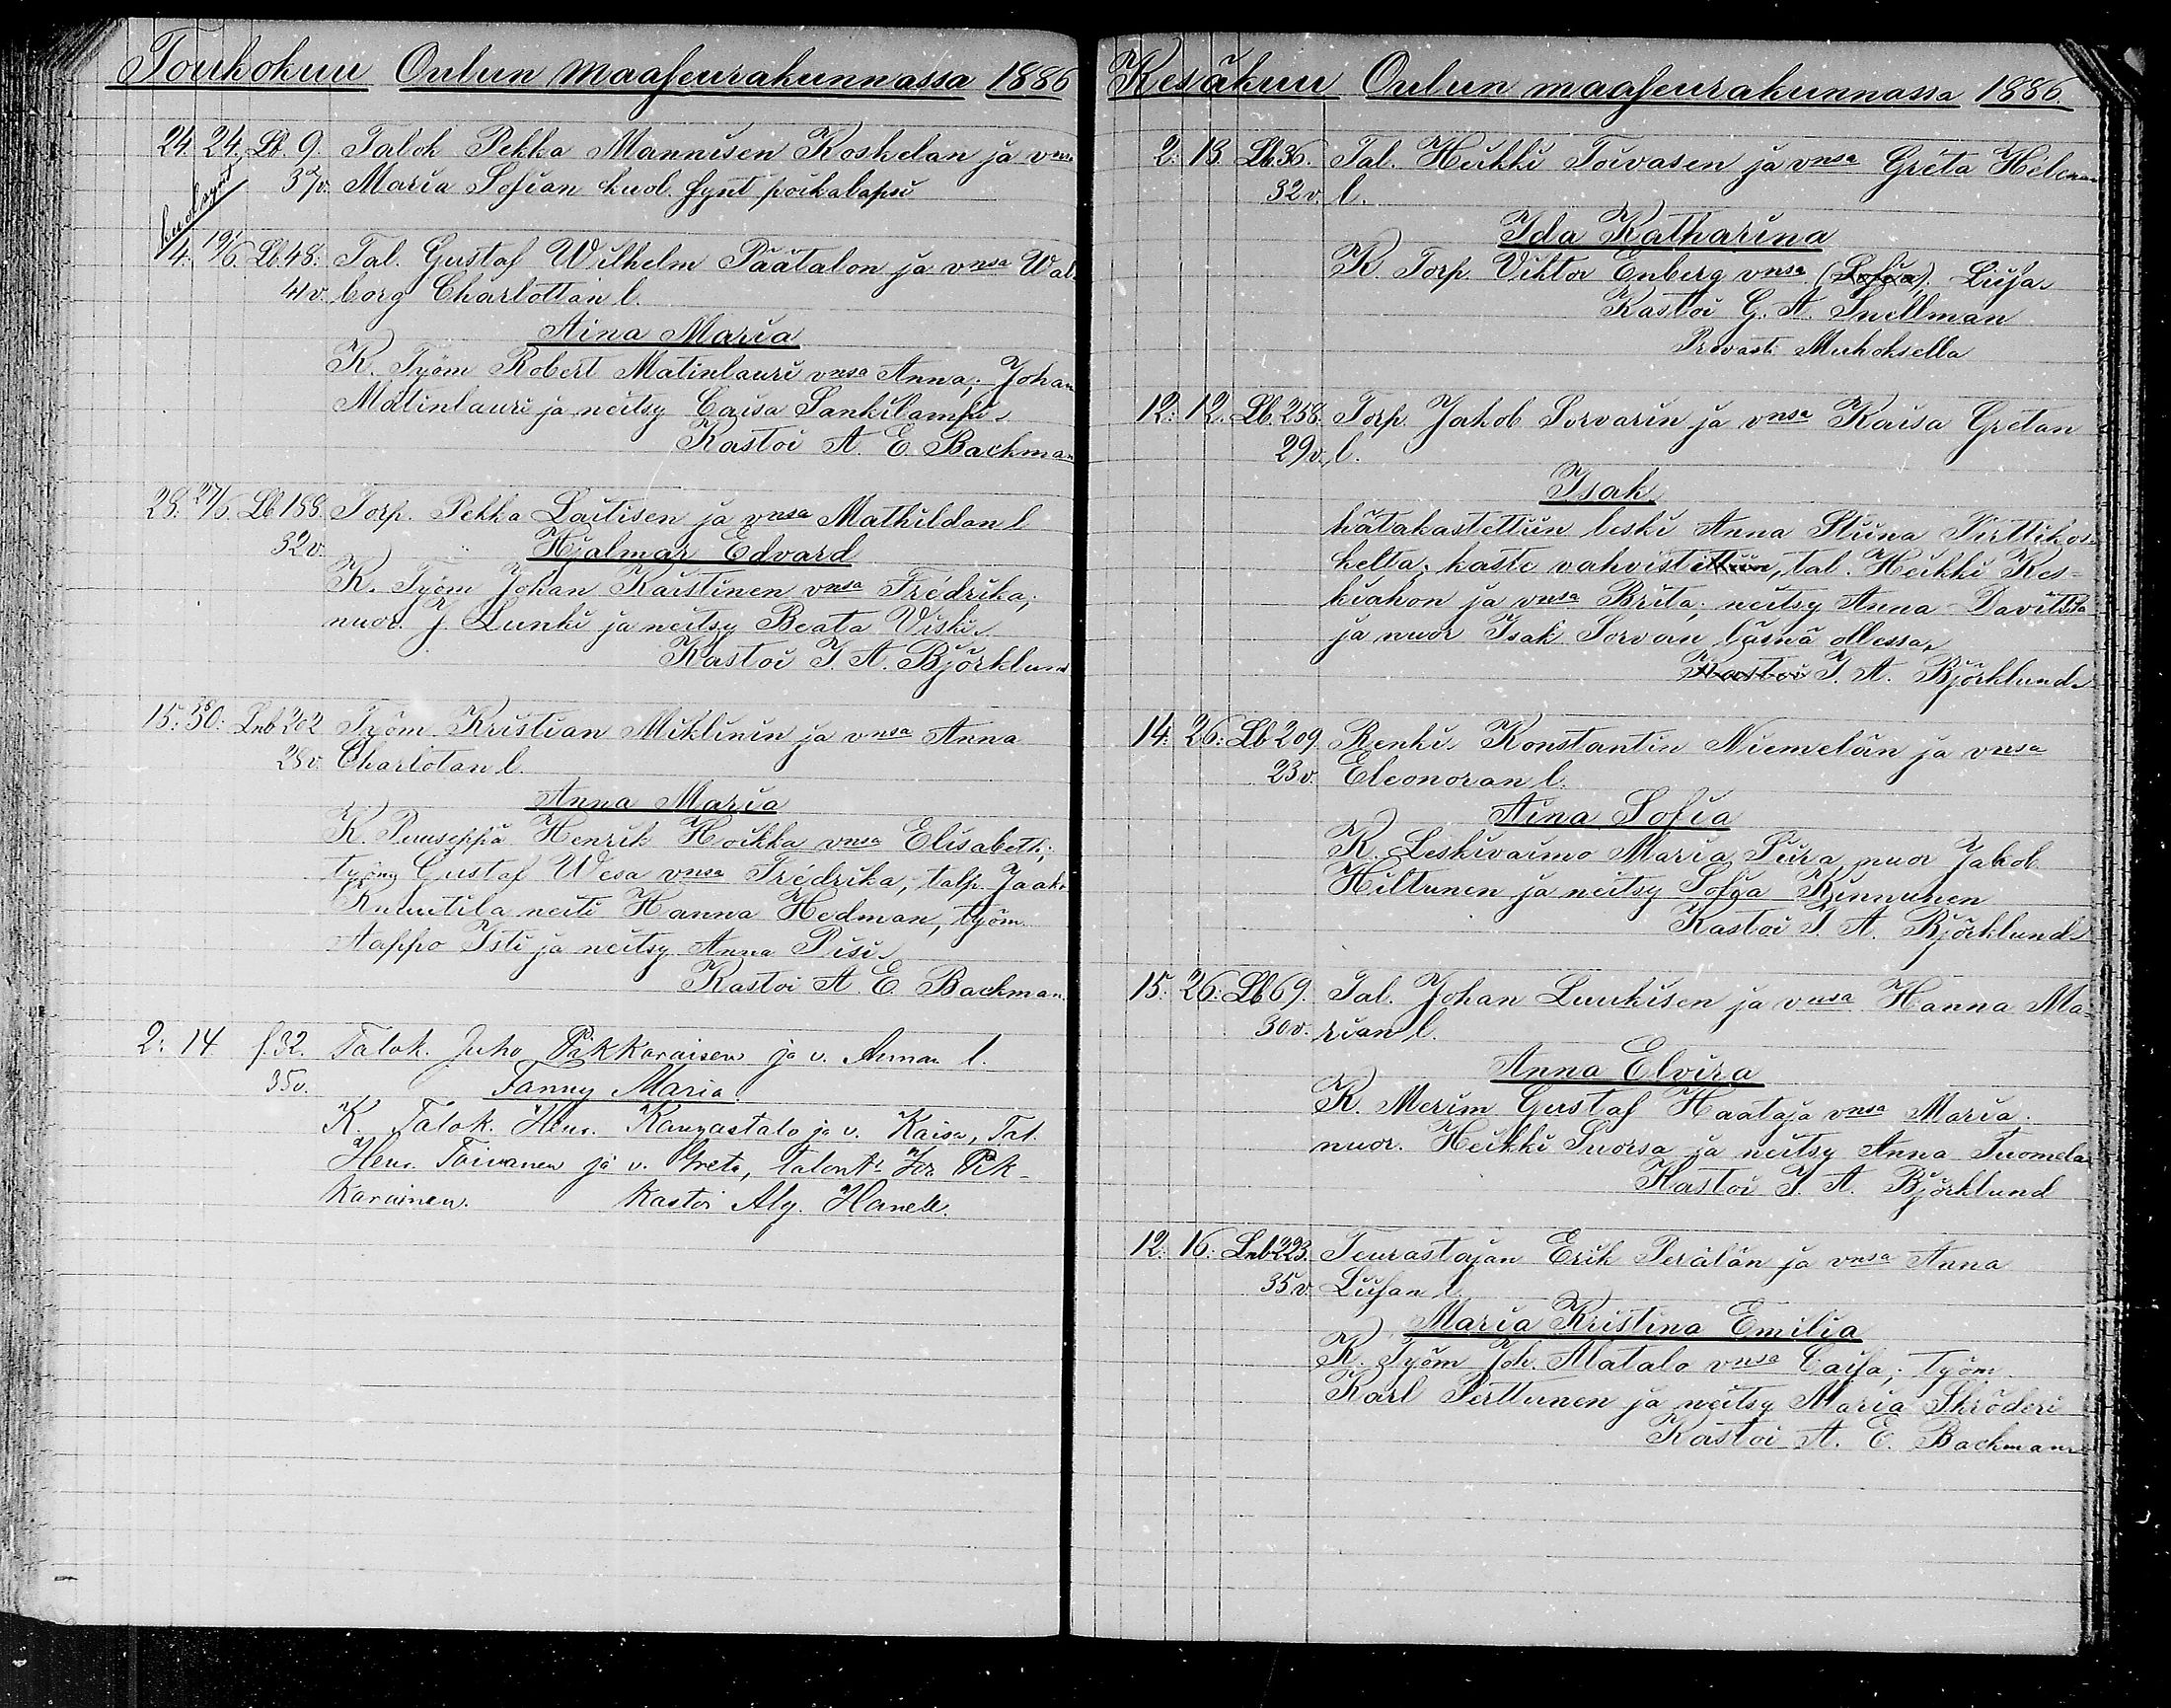 Toukokuu Oulun maaseurakunnassa 1886
24. 24. Lb. 9. Talok Pekka Mannisen Koskelan ja vnsa
kuol synt
37v. Maria Sofian kuol. synt poikalapsi
4. 19/6 Lb. 48. Tal. Gustaf Wilhelm Päätalon ja vnsa Wal-
41 v. borg Charlottan l.
Aina Maria
K. Työm Robert Matinlauri vnsa Anna; Johan
Matinlauri ja neitsy Caisa Sankilampi.
Kastoi A. E. Backman
28. 27/6. Lb 188 Torp. Pekka Laitisen ja vnsa Mathildan l
32 v. Hjalmar Edvard
K. Työm Johan Kaistinen vnsa Fredrika;
nuor. J. Lunki ja neitsy Beata Viski.
Kastoi I. A. Björklund
15. 30. Lnb 202 Työm Kristian Miklinin ja vnsa Anna
28 v. Charlotan l.
Anna Maria
K. Puuseppä Henrik Hoikka vnsa Elisabeth;
työm Gustaf Wesa vnsa Fredrika, talp. Jaak.
Ruuutila neiti Hanna Hedman, työm.
Aappo Isti ja neitsy Anna Pisi.
Kastoi A. E. Backman.
2: 14 f. 32. Talok. Juho Pikkaraisen ja v. Annan l.
35v. Fanny Maria.
K. Talok. Henr. Kangastalo ja v. Kaisa, Tal.
Henr. Toivanen ja v. Greta, talont: Pik-
karainen. Kastoi Alg. Hanell.
Kesäkuu Oulun maaseurakunnassa 1886.
2. 13. Lb. 36. Tal. Heikki Toivasen ja vnsa Greta Helenan
32 v. l.
Ida Katharina
K. Torp. Viktor Enberg vnsa (Sofia). Liisa.
Kastoi G. A. Snellman
Provasti Muhoksella
12. 12. Lb. 258. Torp. Jakob Sorvarin ja vnsa Kaisa Gretan
29v. l.
Isak
hätakastettiin leski Anna Stiina Pirttikos-
kelta; kaste vahvistettiin, tal. Heikki Kes-
kiahon ja vnsa Brita; neitsy Anna Davitsta
ja nuor Isak Sorvan läsnä ollessa.
Kastoi I. A. Björklund.
14. 26. Lb 209. Renki Konstantin Niemelän ja vnsa
23v. Eleonoran l.
Aina Sofia
K. Leskivaimo Maria Piira nuor Jakob
Hiltunen ja neitsy Sofia Kinnunen
Kastoi I. A. Björklund.
15. 26. Lb 69. Tal. Johan Luukisen ja vnsa Hanna Ma-
30v. rian l.
Anna Elvira
K. Merim Gustaf Haataja vnsa Maria.
nuor. Heikki Suorsa ja neitsy Anna Tuomela
Kastoi I. A. Björklund
12. 16. Lnb 223. Teurastajan Erik Perälän ja vnsa Anna
35v. Liisan l
Maria Kristina Emilia
K. Työm Joh. Alatalo vnsa Caisa; työm
Karl Perttunen ja neitsy Maria Skröderi
Kastoi A. E. Backman